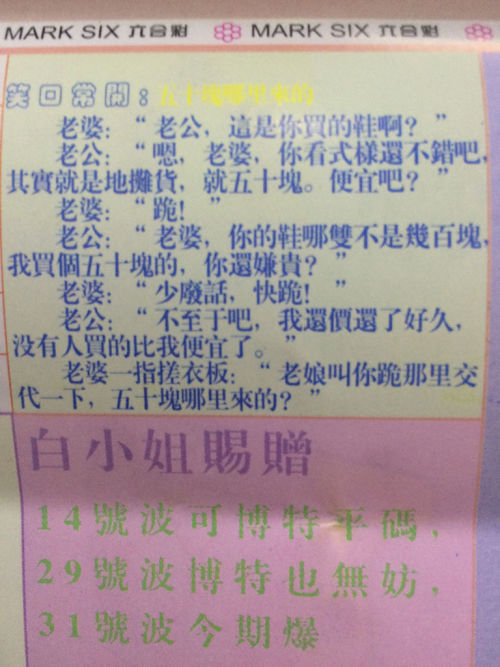 MARK SIX 六合彩 MARK SIX 六合彩
笑口常開：五十塊哪里來的
老婆：“老公，這是你買的鞋啊？”
老公：“嗯，老婆，你看式樣還不錯吧，
其實就是地攤貨，就五十塊。便宜吧？”
老婆：“跪！”
老公：“老婆，你的鞋哪雙不是幾百塊，
我買個五十塊的，你還嫌貴？”
老婆：“少廢話，快跪！”
老公：“不至于吧，我還價還了好久，
没有人買的比我便宜了。”
老婆一指搓衣板：“老娘叫你跪那里交
代一下，五十塊哪里來的？”
白小姐賜贈
14號波可博特平碼，
29號波博特也無妨，
31號波今期爆